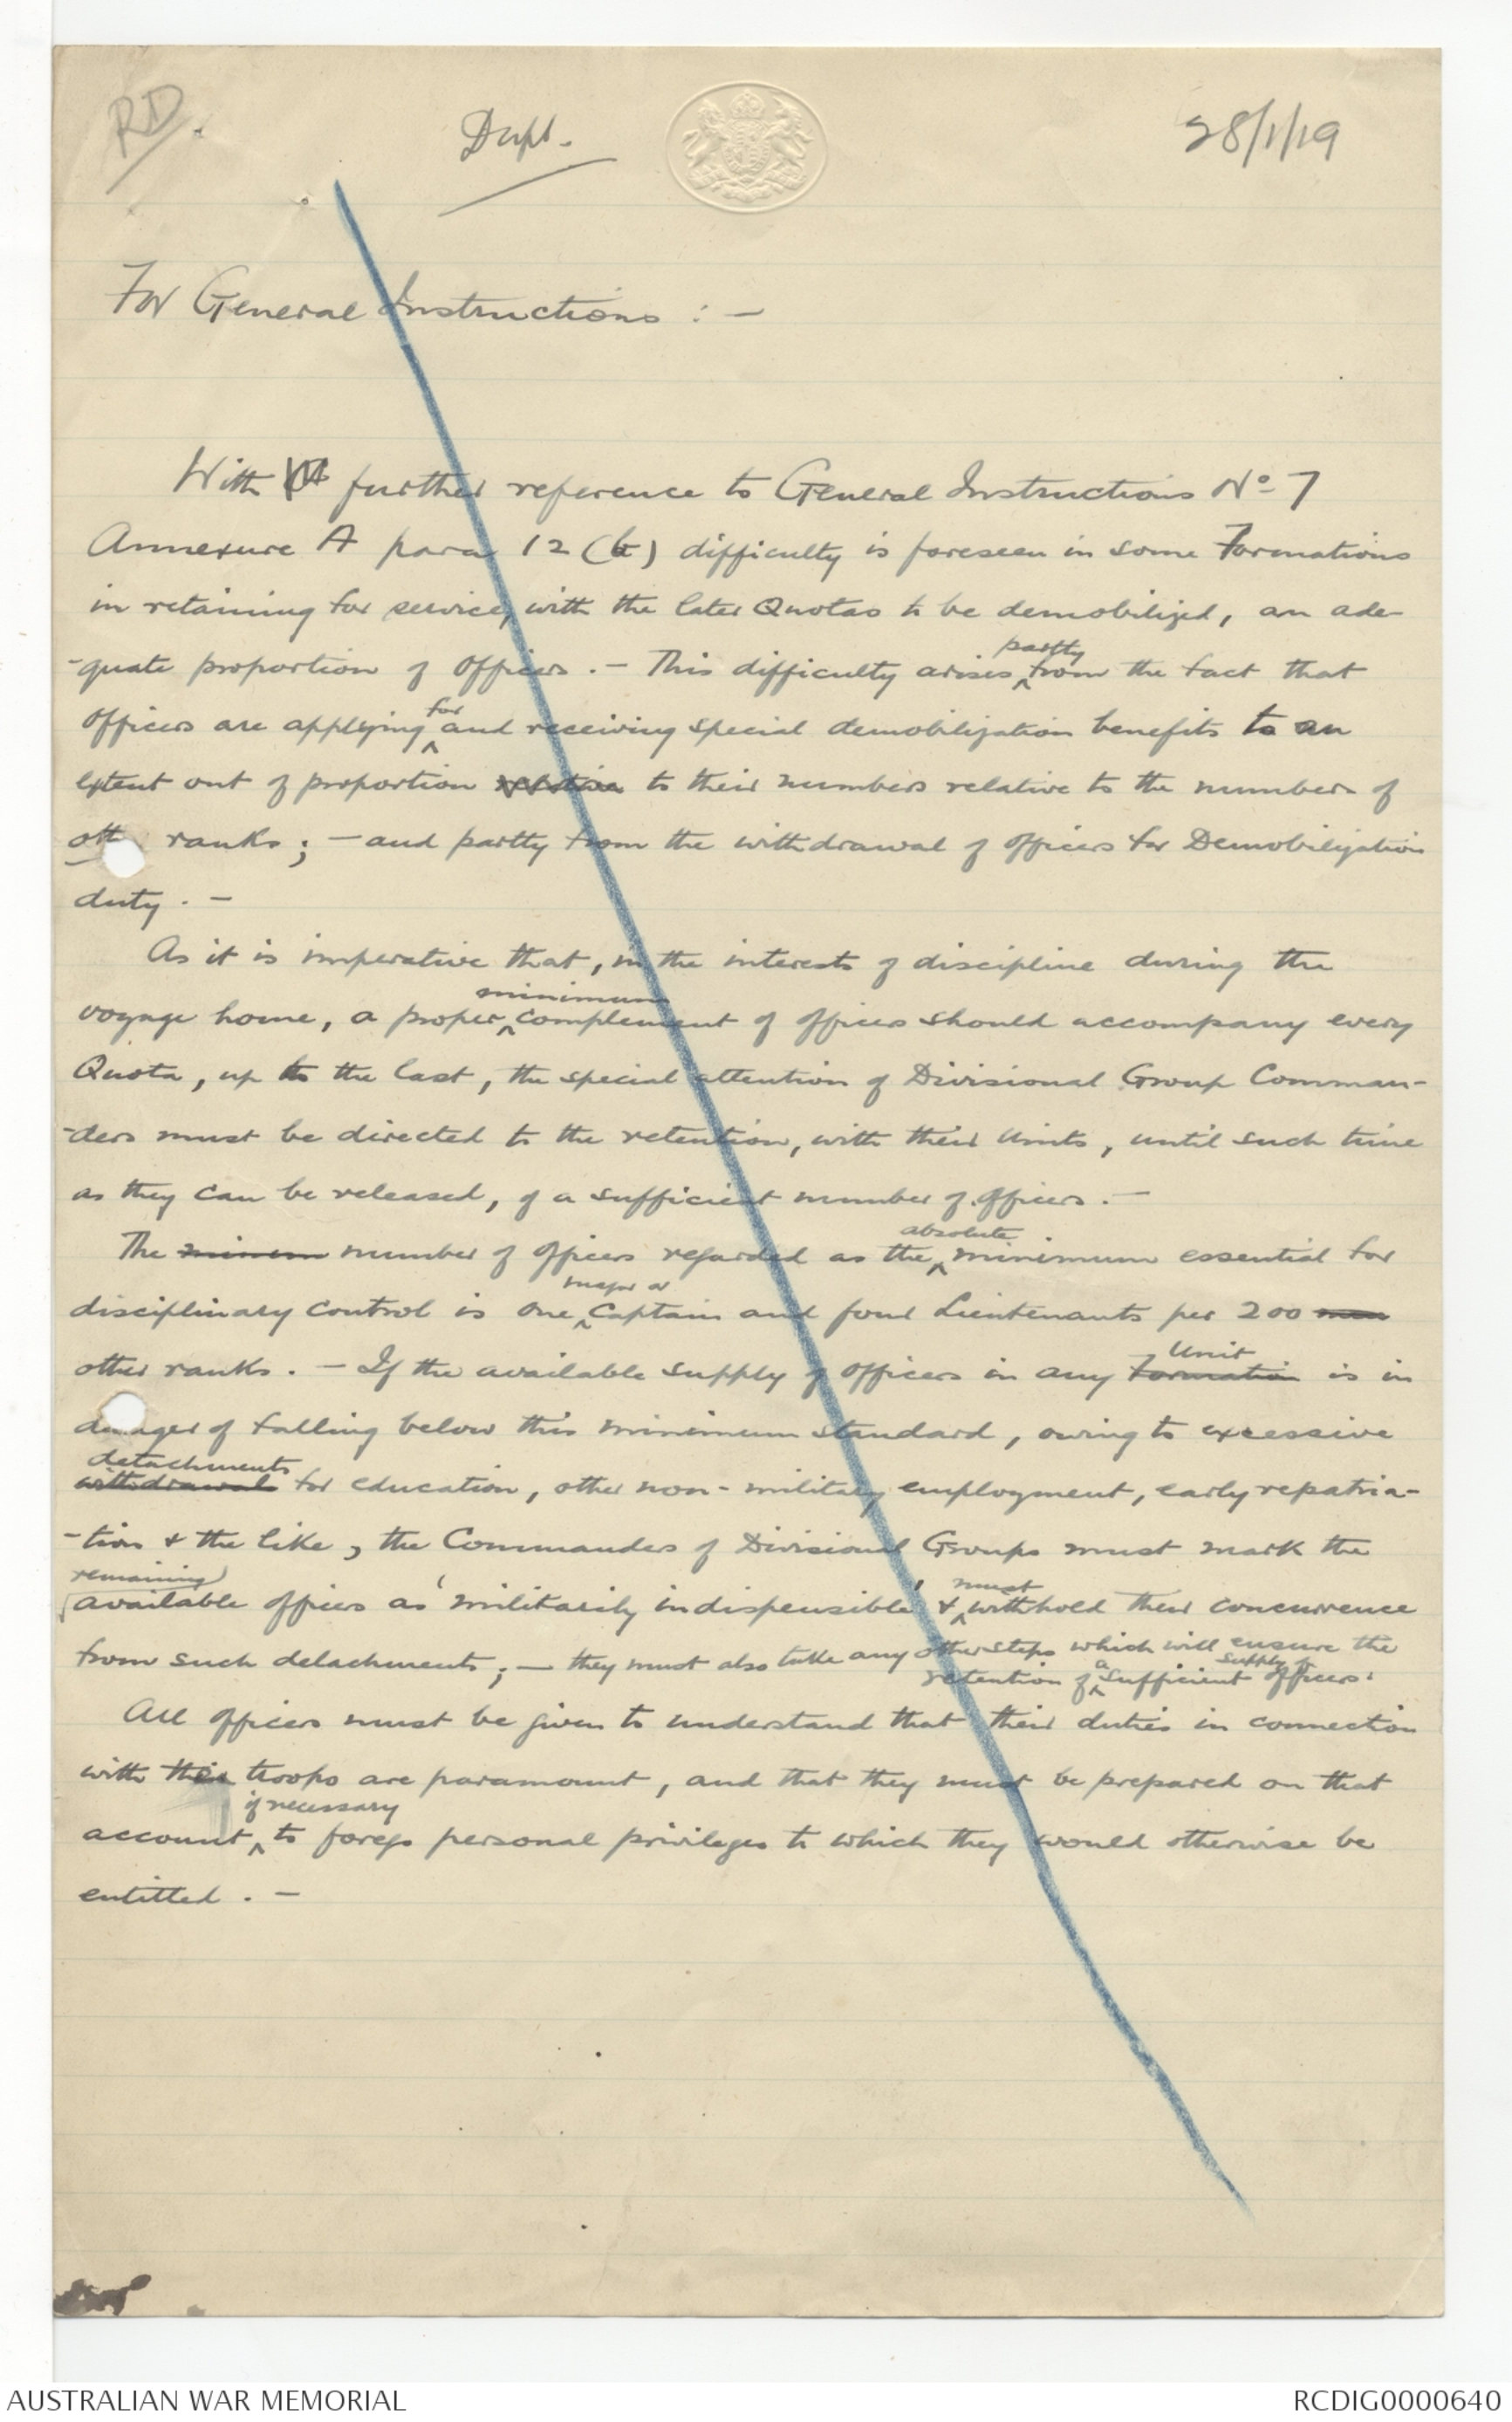 RD.
Dupl.
28/1/19
For General Instructions : -
With further reference to General Instructions No 7
Annexure A para 12 (b) difficulty is foreseen in some Formations
in retaining for service, with the later Quotas to be demobilized, an ade-
-quate proportion of Officers . - This difficulty arises partly from the fact that
Officers are applying for and receiving special demobilization benefits to an
extent out of proportion relative to their numbers relative to the number of
oth ranks ; - and partly from the withdrawal of Officers for Demobilization
duty . -
As it is imperative that, in the interests of discipline during the
voyage home, a proper minimum complement of officers should accompany every
Quota, up to the last, the special attention of Divisional Group Comman-
-ders must be directed to the retention, with their Units, until such time
as they can be released, of a sufficient number of officers . -
The minimum number of officers regarded as the absolute minimum essential for
disciplinary control is one major or Captain and four Lieutenants per 200 men
other ranks . - If the available supply of officers in any Formation Unit is in
danger of falling below this minimum standard, owing to excessive
withdrawals detachments for education, other non-military employment, early repatria-
-tion & the like, the Commanders of Divisional Groups must mark the
remaining available officers as 'militarily indispensible' & must withhold their concurrence
from such detachments ; - they must also take any other steps which will ensure the
retention of a sufficient supply of officers.
All officers must be given to understand that their duties in connection
with their troops are paramount, and that they must be prepared on that
account, if necessary to forego personal privileges to which they would otherwise be
entitled . -
AUSTRALIAN WAR MEMORIAL
RCDIG0000640